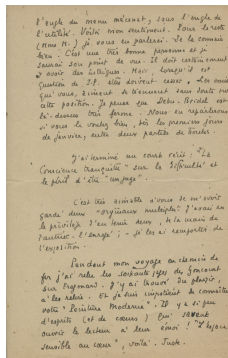 l'angle du menu mécénat, sous l'angle de
l'utilité. Voilà mon sentiment. Pour le reste
(Mons M.) je vous en parlerai. Je le connais
bien. C'est une très bonne personne et je
saurai son point de vue. Il doit certainement
y avoir des intrigues. Mais, lorsqu'il est
question de J.P. elles doivent cesser. Les amis
qui vous, sinon se tiennent sans doute sur
cette position. Je pense que Debu-Bridel est
là-dessus très ferme. Nous en reparlerons
si vous le voulez bien, dès les premiers jours
de janvier, entre deux parties de boules.
J'ai terminé un court récit : "La
Conscience tranquille" sur la difficulté et
le péril d'être "engagé".
C'est très aimable à vous de m'avoir
gardé deux "originaux multiples". J'aurai
le privilège d'en tenir deux de la main de
l'auteur. "l'enragé" ; je les ai remportés de
l'exposition.
Pendant mon voyage en chemin de
fer j'ai relu les soixante pages de
sur Fragonard. J'y ai trouvé du plaisir,
à les relire. Et je suis impatient de connaître
votre "Peinture Moderne". Il y a si peu
d'esprits (et de cœurs) qui savent
ouvrir le lecteur à leur émoi ! "L'espace
sensible au cœur", voilà. Juste.